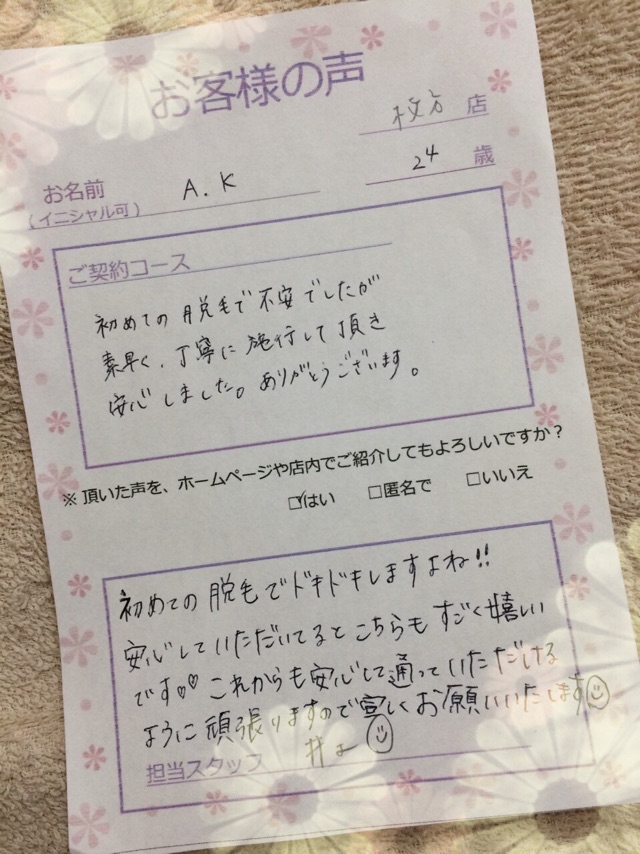 お客様の声
枚方 店
お名前 A.K 24 歳
(イニシャル可)
ご契約コース
初めての脱毛で不安でしたが
素早く、丁寧に施行して頂き
安心しました。ありがとうございます。
※頂いた声を、ホームページや店内でご紹介してもよろしいですか?
☑はい □匿名で □いいえ
初めての脱毛でドキドキしますよね!!
安心していただいてるとこちらもすごく嬉しい
です♡♡ これからも安心して通っていただける
ように頑張りますので宜しくお願いいたします☺
担当スタッフ 井上 ☺